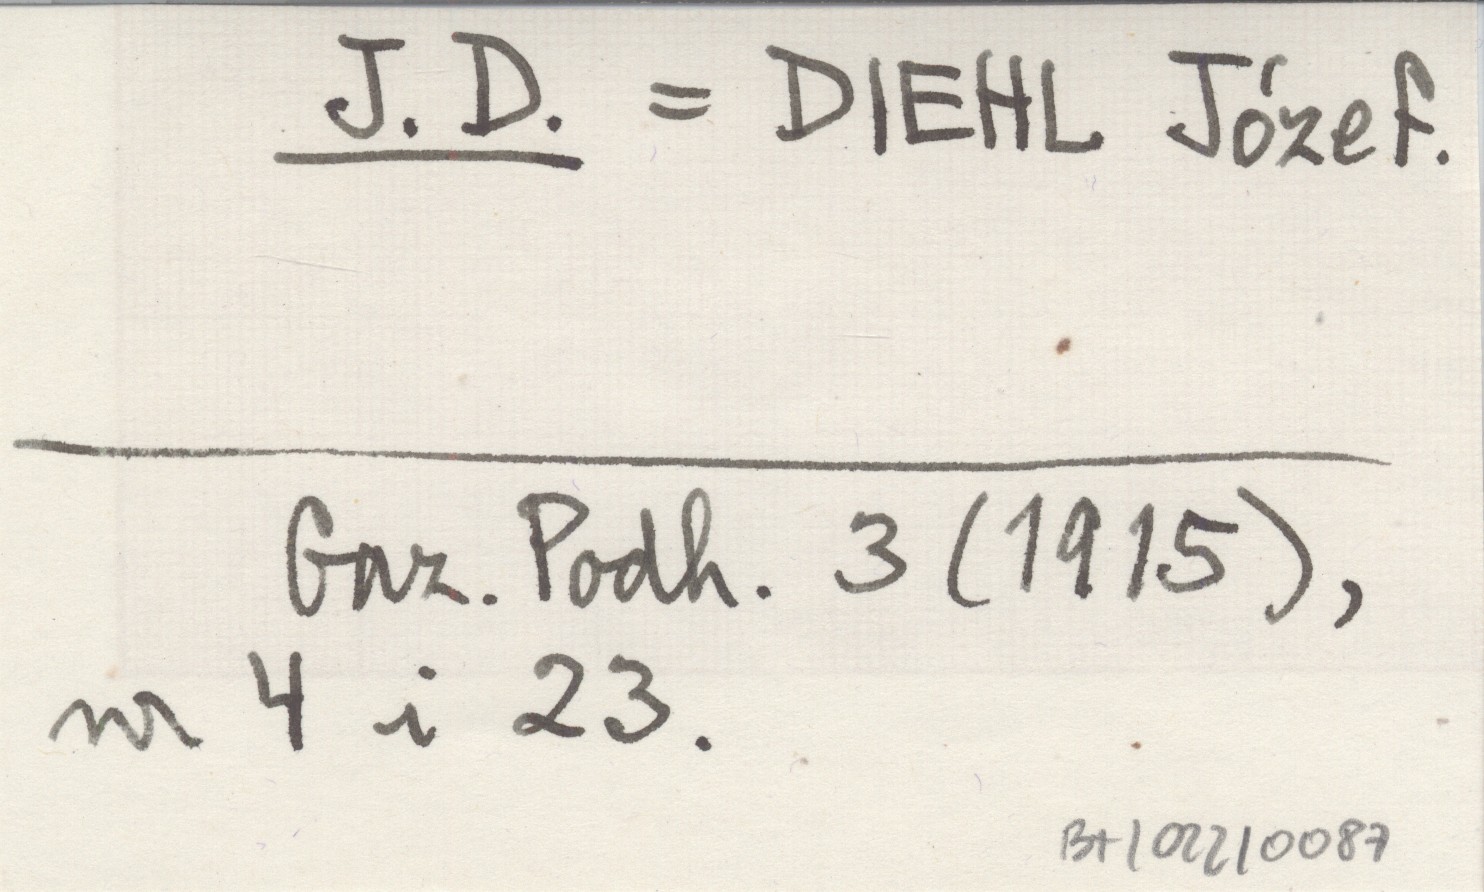 J. D. = DIEHL Józef.
Gaz. Podh. 3 (1915),
nr 4 i 23.
B+/022/0087